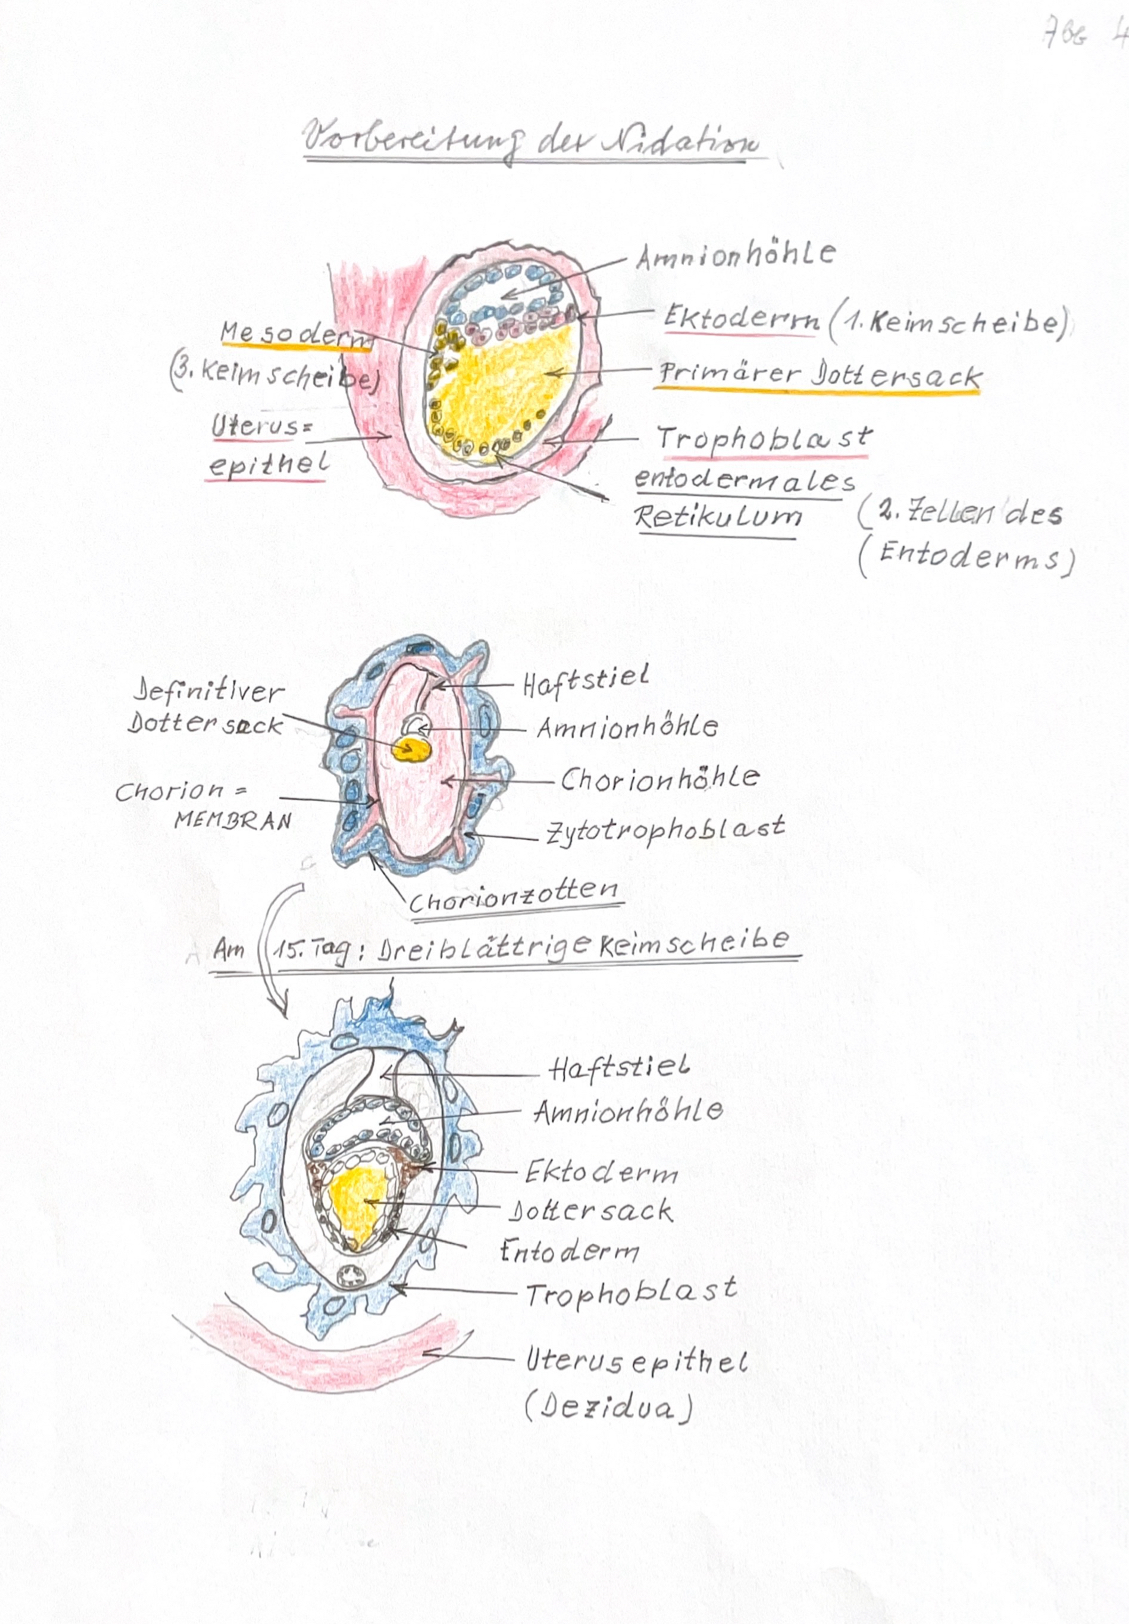 Abb 4
Vorbereitung der Nidation
Amnionhöhle
Ektoderm (1. Keimscheibe)
Mesoderm
(3. Keimscheibe)
Primärer Dottersack
Uterus=
epithel
Trophoblast
entodermales
Retikulum
(2. Zellen des
(Entoderms)
Definitiver
Dottersack
Haftstiel
Amnionhöhle
Chorionhöhle
Chorion=
MEMBRAN
Zytotrophoblast
Chorionzotten
Am 15. Tag: Dreiblättrige Keimscheibe
Haftstiel
Amnionhöhle
Ektoderm
Dottersack
Entoderm
Trophoblast
Uterusepithel
(Dezidua)